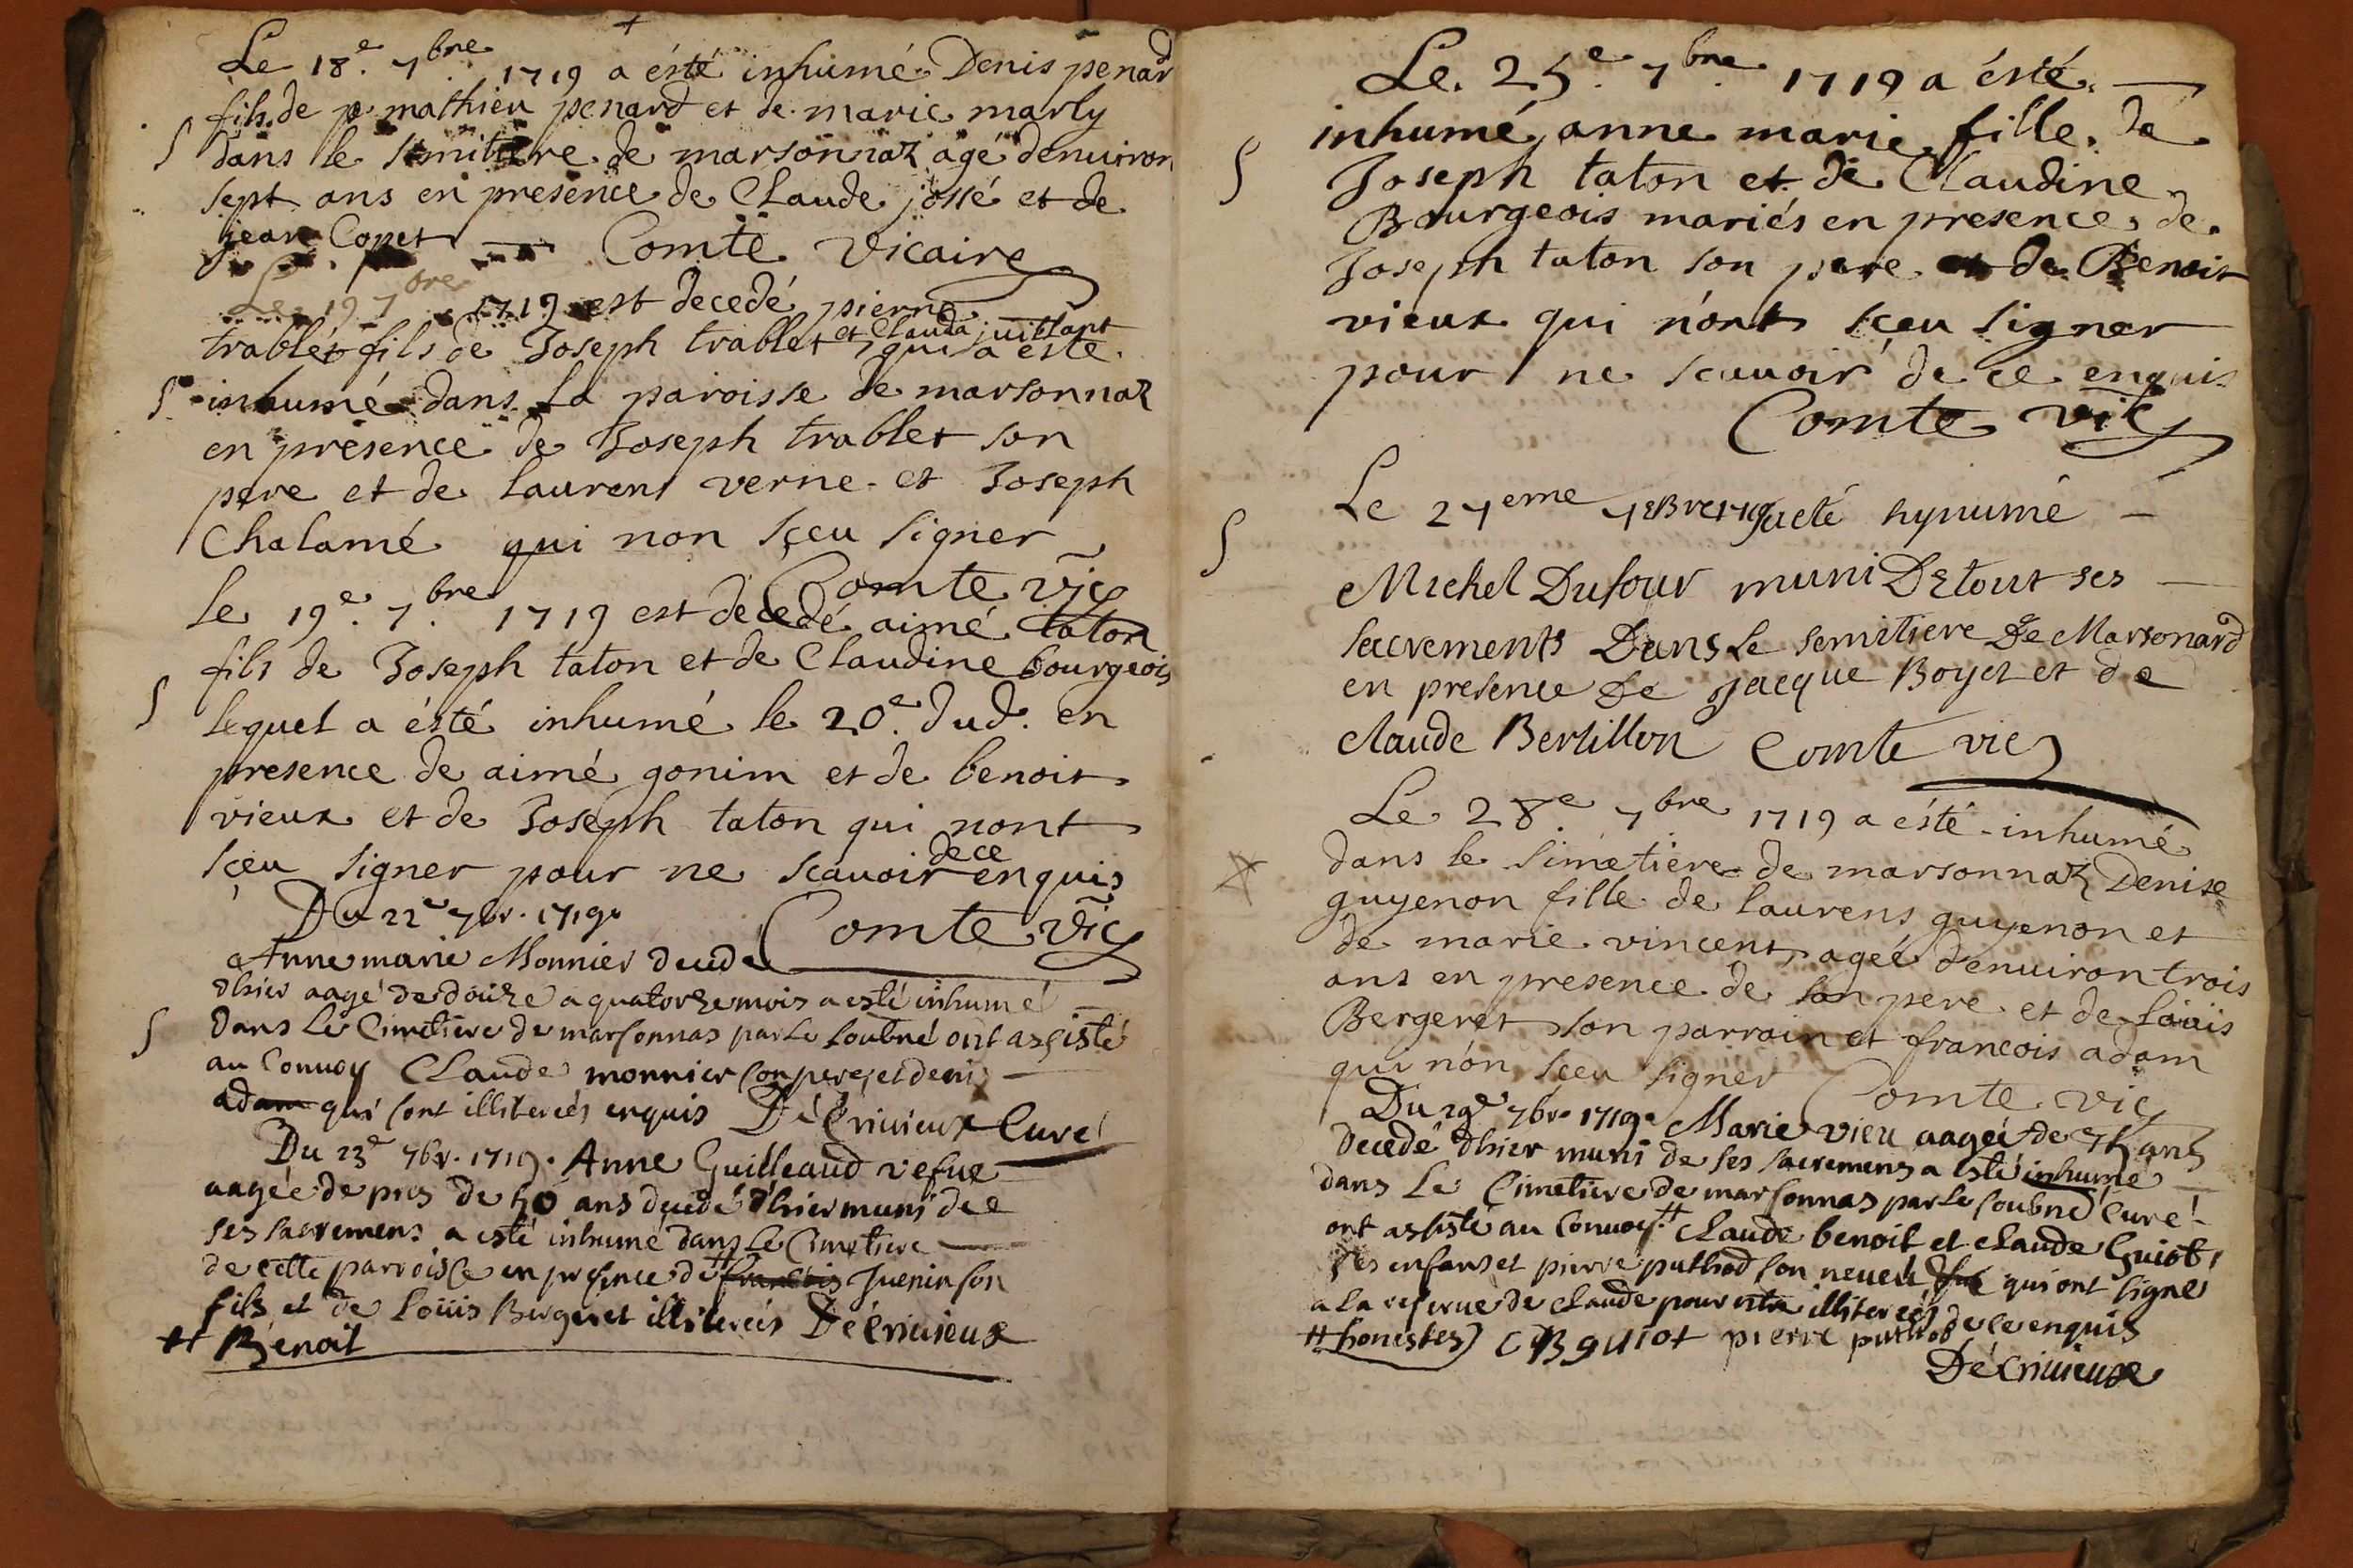 Le 18.e 7.bre 1719 a ésté inhumé Denis penard
fils de p mathieu penard et de marie marly
dans le simitiere de marsonnaz agé denuiron
sept ans en presence de Claude jossé et de
jean Copet Comte vicaire
Le 19 7bre 1719 est decedé pierre
trablet fils de Joseph trablet et Clauda juillant qui a esté
inhumé dans la paroisse de marsonnaz
en présence de Joseph trablet son
pere et de laurens verne et Joseph
Chalamé qui non sçeu signer
Comte vic
le 19.e 7.bre 1719 est decedé aimé taton
fils de Joseph taton et de Claudine bourgeois
lequel a ésté inhumé le 20.e dud. en
presence de aimé gonim et de benoit
vieux et de Joseph taton qui nont
sçeu signer pour ne scauoir de ce enquis
Comte vic
Du 22e 7br. 1719.
Anne marie Monnier decede
dhier aagé de douze a quatorze mois a esté inhumé
dans Le Cimetiere de marsonnas par Le soubné ont assisté
au Conuoy Claude monnier son pere, et denis
adam qui sont illiterés enquis Décriuieux Curé
Du 23e 7br. 1719. Anne Guilleaud vefue
aagée de pres de 50 ans decedé dhier muni de
ses sacremens a esté inhumé dans Le Cimetiere
de cette parroisse en presence de # francois Juenin son
fils et de Loüis Bergeret illiterés Décriuieux
# Benoit
Le 25.e 7.bre 1719 a ésté
inhumé anne marie fille de
Joseph taton et de Claudine
Bourgeois mariés en presence de
Joseph taton son pere et de Benoit
vieux qui n'ont sçeu signer
pour ne scauoir de ce enquis
Comte vic
Le 27eme 7Bre 1719 a eté hynumé
Michel Dufour muni De tout ses
sacrements Dans Le semitiere De Marsonard
en presence De Jacque Boyet et de
claude Bertillon Comte vic
Le 28.e 7bre 1719 a ésté inhumé
dans le simetiere de marsonnaz Denise
guyenon fille de laurens guyenon et
de marie vincent, agée denuiron trois
ans en presence de son pere et de loüis
Bergeret son parrain et francois adam
qui n'ón sçeu signer Comte vic
Du 29e 7br. 1719. Marie vieu aagée de 75 ans
decedé dhier muni de ses sacremens a esté inhumé
dans Le Cimetiere de marsonnas par Le soubné Curé
ont assisté au Conuoy # Claude benoit et claude Guiot
ses enfans et pierre puthod son neueu qui ont signé
a la reserue de claude pour estre illiterés de ce enquis
# honestes) C B guiot pierre puthod
Décriuieux